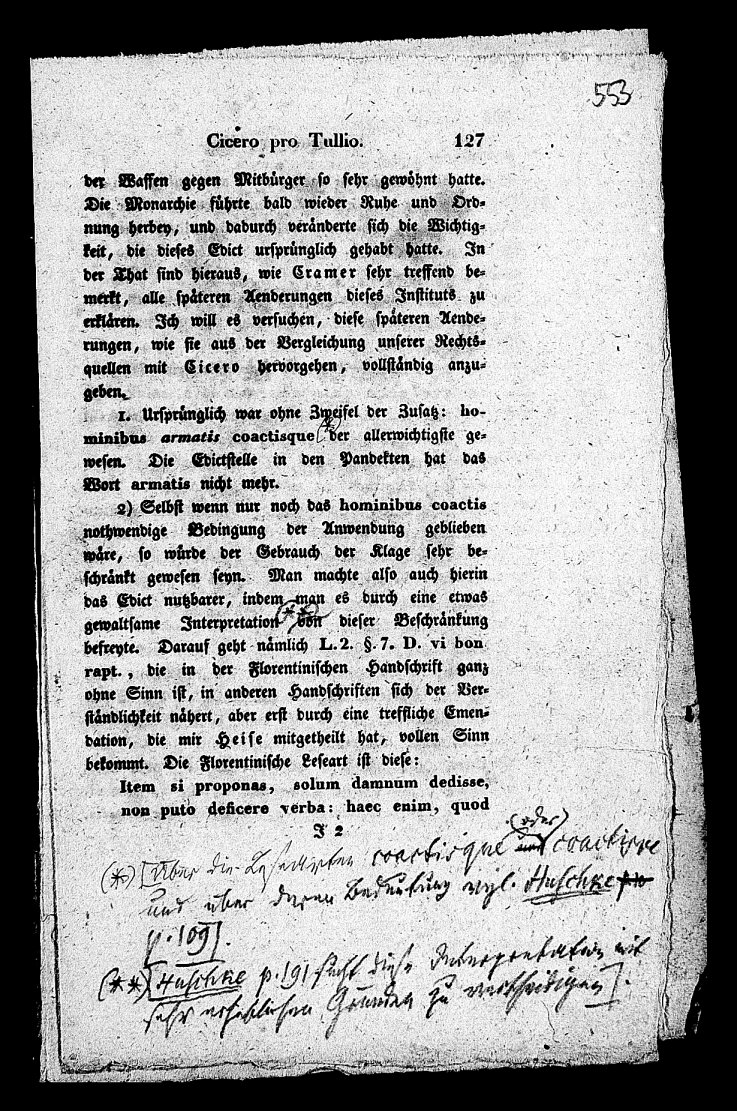 553
Cicero pro Tullio. 127
der Waffen gegen Mitbürger so sehr gewöhnt hatte.
Die Monarchie führte bald wieder Ruhe und Ord-
nung herbey, und dadurch veränderte sich die Wichtig-
keit, die dieses Edict ursprünglich gehabt hatte. In
der That sind hieraus, wie Cramer sehr treffend be-
merkt, alle späteren Aenderungen dieses Instituts zu
erklären. Ich will es versuchen, diese späteren Aende-
rungen, wie sie aus der Vergleichung unserer Rechts-
quellen mit Cicero hervorgehen, vollständig anzu-
geben.
1. Ursprünglich war ohne Zweifel der Zusatz: ho-
minibus armatis coactisque (*) der allerwichtigste ge-
wesen. Die Edictstelle in den Pandekten hat das
Wort armatis nicht mehr.
2) Selbst wenn nur noch das hominibus coactis
nothwendige Bedingung der Anwendung geblieben
wäre, so würde der Gebrauch der Klage sehr be-
schränkt gewesen seyn. Man machte also auch hierin
das Edict nutzbarer, indem man es durch eine etwas
gewaltsame Interpretation (**) von dieser Beschränkung
befreyte. Darauf geht nämlich L. 2. §. 7. D. vi bon
rapt., die in der Florentinischen Handschrift ganz
ohne Sinn ist, in anderen Handschriften sich der Ver-
ständlichkeit nähert, aber erst durch eine treffliche Emen-
dation, die mir Heise mitgetheilt hat, vollen Sinn
bekommt. Die Florentinische Leseart ist diese:
Item si proponas, solum damnum dedisse,
non puto deficere verba: haec enim, quod
I 2
(oder)
(*) [Über die Lesearten coactisque und coactisve
und über deren Bedeutung vgl. Huschke
p. 109].
(**) [Huschke p. 191 sucht diese Interpretation mit
sehr erheblichen Gründen zu vertheidigen].